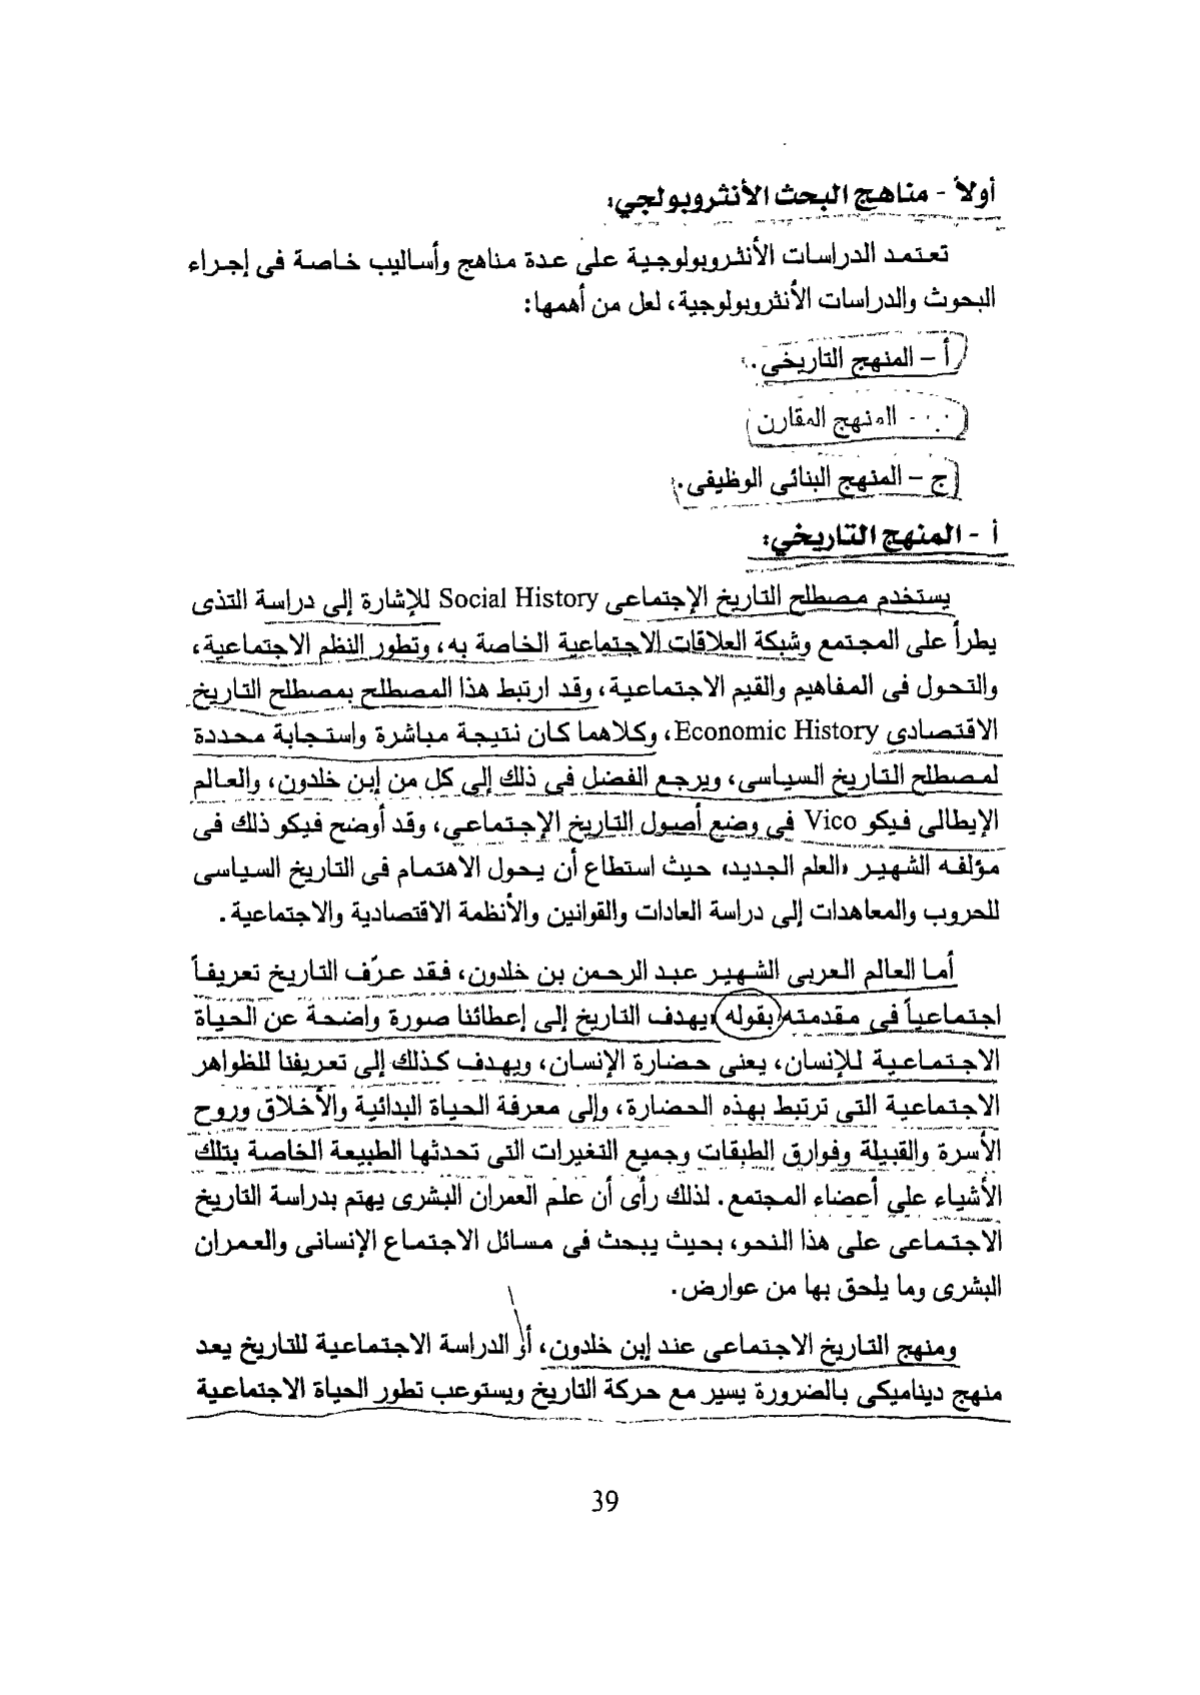 أولاً - مناهج البحث الأنثروبولجي:
تعتمد الدراسات الأنثروبولوجية على عدة مناهج وأساليب خاصة فى إجراء
البحوث والدراسات الأنثروبولوجية، لعل من أهمها:
أ – المنهج التاريخى.
- المنهج المقارن
ج – المنهج البنائى الوظيفى.
أ - المنهج التاريخي:
يستخدم مصطلح التاريخ الإجتماعى Social History للإشارة إلى دراسة التذى
يطرأ على المجتمع وشبكة العلاقات الاجتماعية الخاصة به، وتطور النظم الاجتماعية،
والتحول فى المفاهيم والقيم الاجتماعية، وقد ارتبط هذا المصطلح بمصطلح التاريخ
الاقتصادى Economic History، وكلاهما كان نتيجة مباشرة واستجابة محددة
لمصطلح التاريخ السياسى، ويرجع الفضل فى ذلك إلى كل من إبن خلدون، والعالم
الإيطالى فيكو Vico فى وضع أصول التاريخ الإجتماعى، وقد أوضح فيكو ذلك فى
مؤلفه الشهير «العلم الجديد» حيث استطاع أن يحول الاهتمام فى التاريخ السياسى
للحروب والمعاهدات إلى دراسة العادات والقوانين والأنظمة الاقتصادية والاجتماعية.
أما العالم العربى الشهير عبد الرحمن بن خلدون، فقد عرّف التاريخ تعريفاً
اجتماعياً فى مقدمته بقوله «يهدف التاريخ إلى إعطائنا صورة واضحة عن الحياة
الاجتماعية للإنسان، يعنى حضارة الإنسان، ويهدف كذلك إلى تعريفنا للظواهر
الاجتماعية التى ترتبط بهذه الحضارة، وإلى معرفة الحياة البدائية والأخلاق وروح
الأسرة والقبيلة وفوارق الطبقات وجميع التغيرات التى تحدثها الطبيعة الخاصة بتلك
الأشياء على أعضاء المجتمع. لذلك رأى أن علم العمران البشرى يهتم بدراسة التاريخ
الاجتماعى على هذا النحو، بحيث يبحث فى مسائل الاجتماع الإنسانى والعمران
البشرى وما يلحق بها من عوارض.
ومنهج التاريخ الاجتماعى عند إبن خلدون، أو الدراسة الاجتماعية للتاريخ يعد
منهج ديناميكى بالضرورة يسير مع حركة التاريخ ويستوعب تطور الحياة الاجتماعية
39